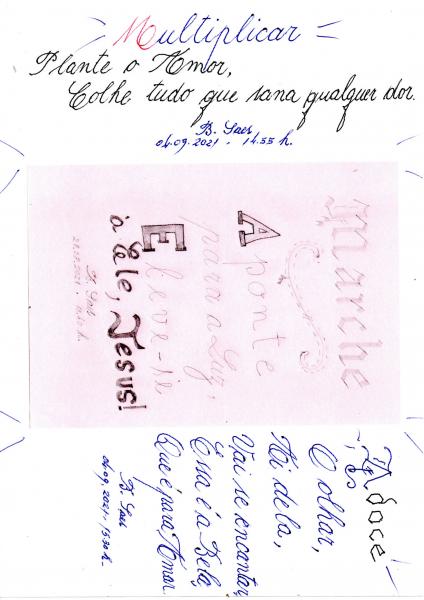 = Multiplicar =
Plante o Amor,
Colhe tudo que sana qualquer dor.
B. Saes
04.09.2021 - 14.55 h.
Marche
Aponte
para a Luz,
Eleve-se
à Ele, Jesus!
B. Saes
Adoce!
O olhar,
Ai dela,
Vai se encantar,
Essa é a Bela,
Que é para Amor.
B. Saes
04.09.2021 - 15.30 h.